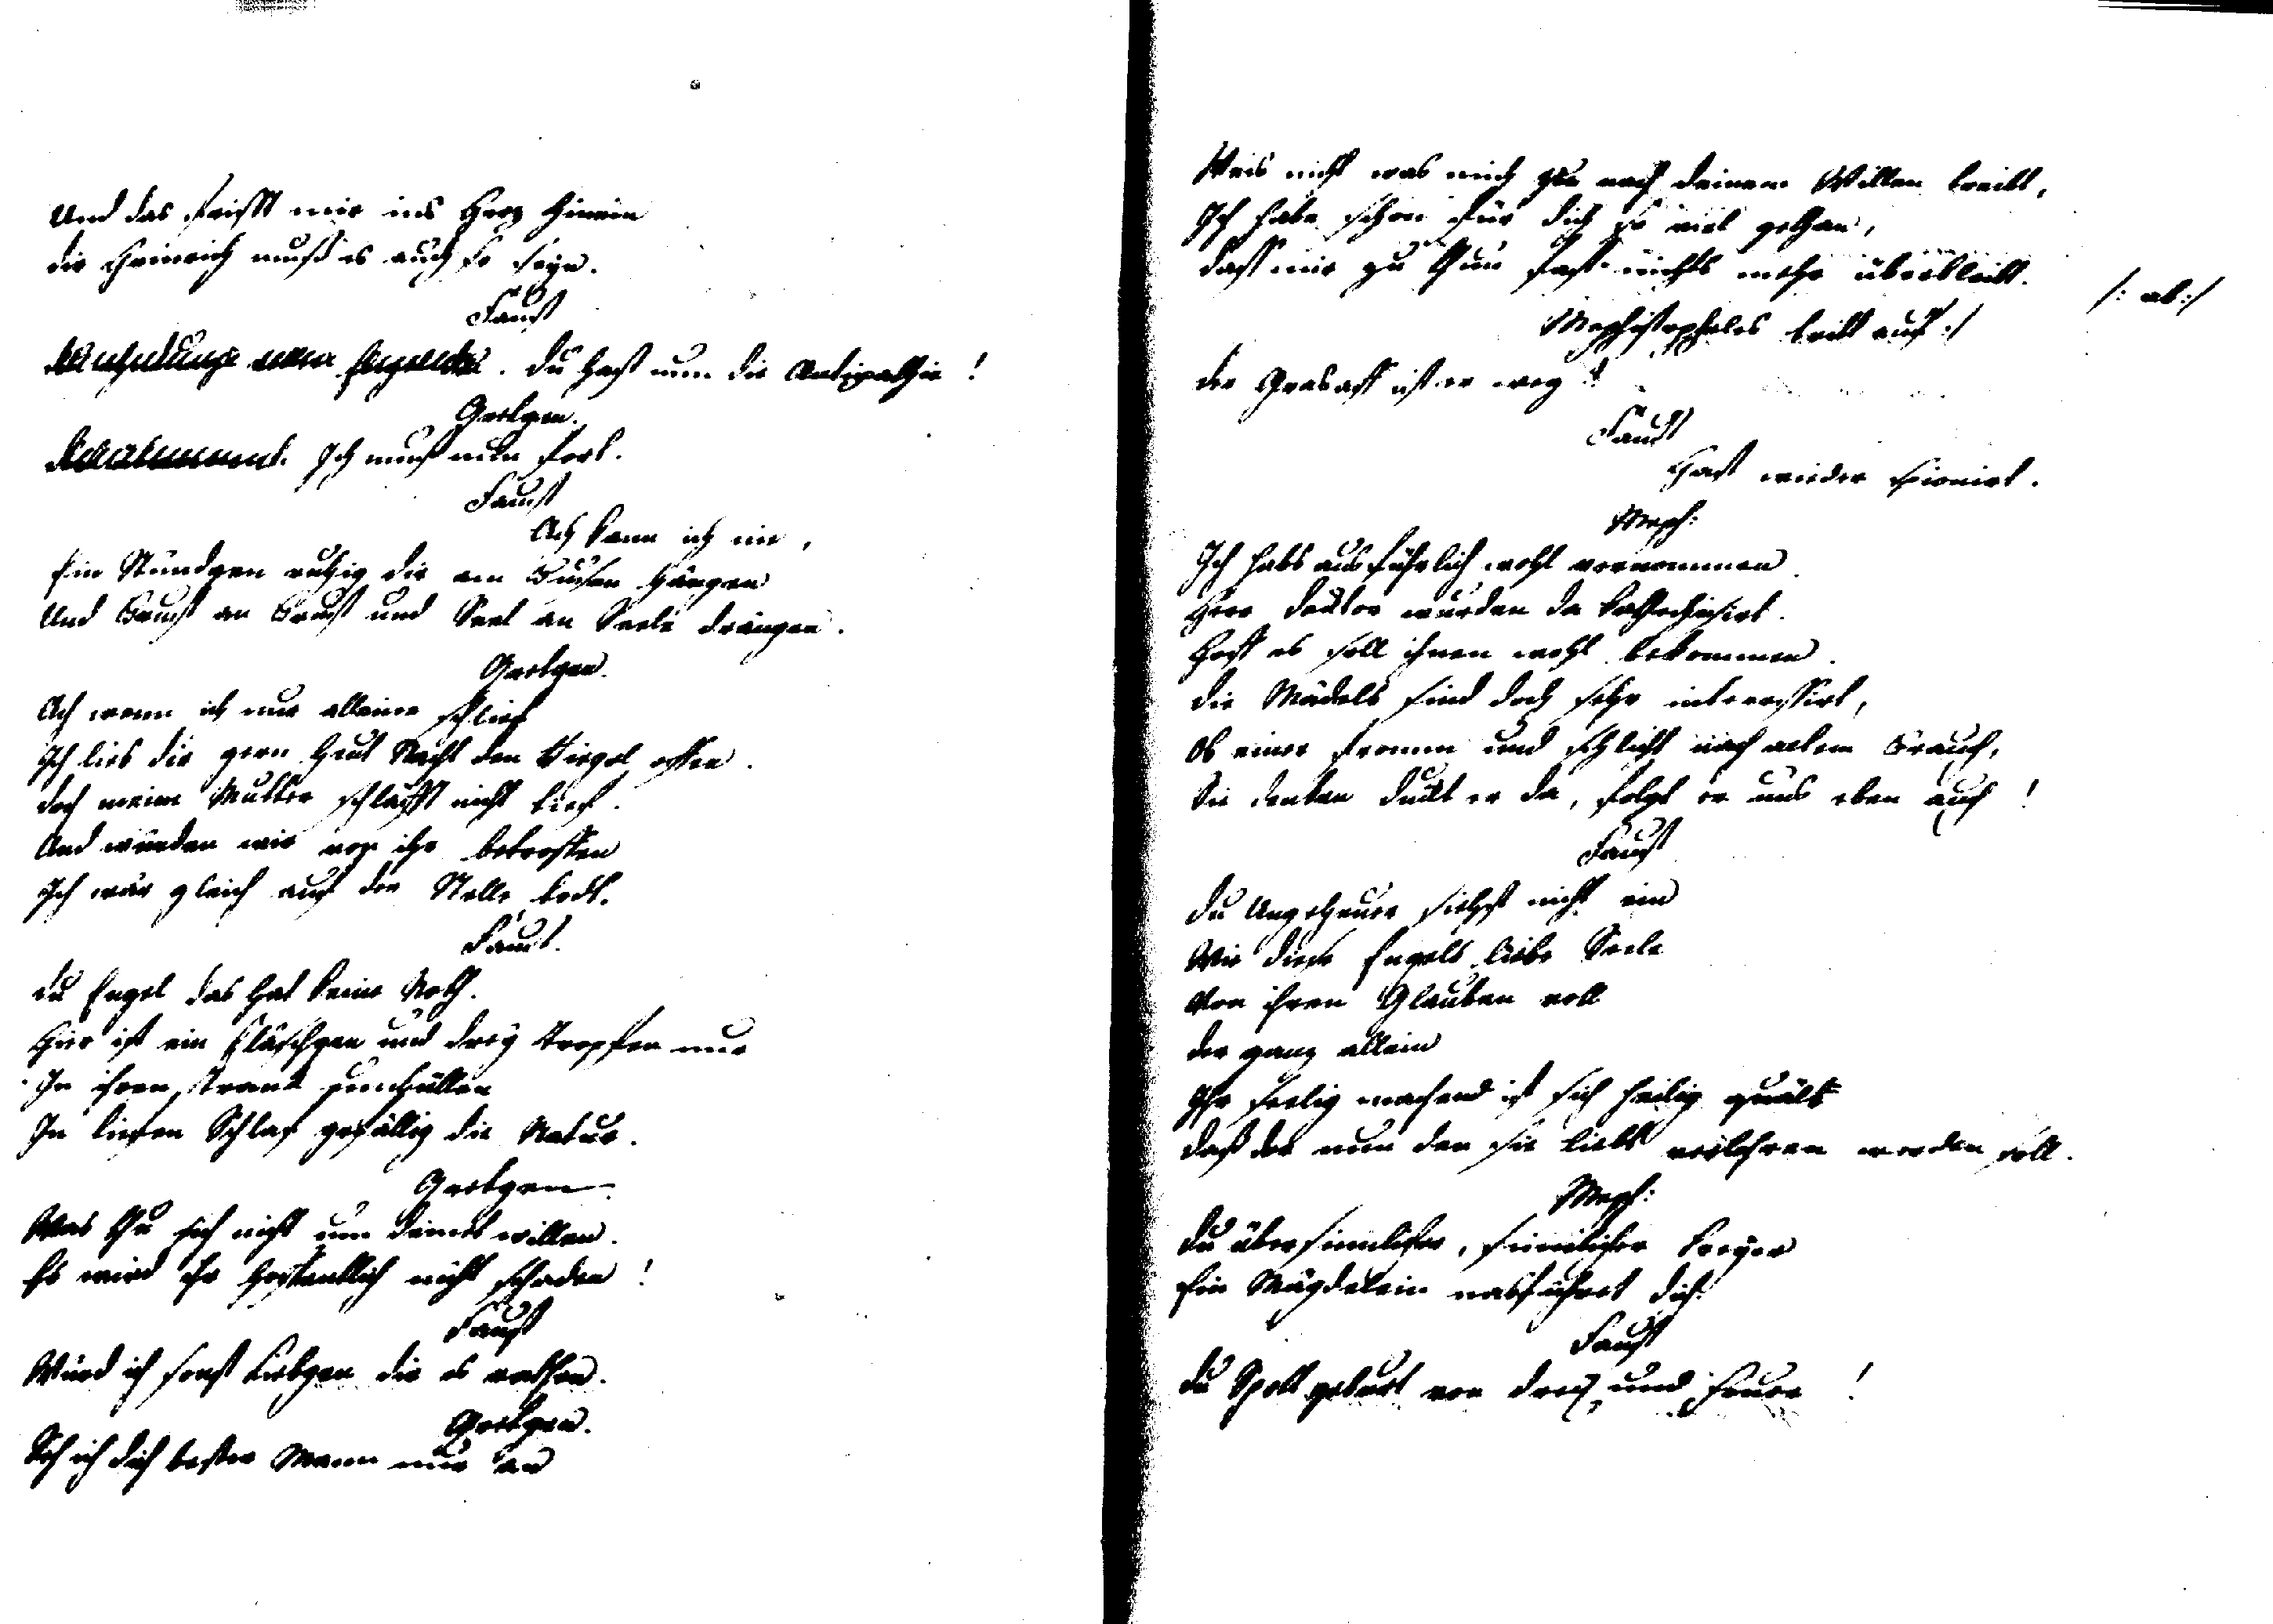 Und das frisst mir ins Herz hinein
dir Heinrich muss es auch so seyn.
Faust
Du hast nun die Antipathie!
Gretgen.
Ich muss nun fort.
Faust
Ach kann ich nie,
Ein Stündgen ruhig dir am Busen hängen
Und Brust an Brust und Seel an Seele drängen.
Gretgen.
Ach wenn ich nur alleine schlief
Ich lies dir gern heut Nacht den Riegel offen.
doch meine Mutter schläfft nicht tief.
Und würden wir von ihr betroffen
Ich wär gleich auf der Stelle todt.
Faust.
du Engel das hat keine Noth.
Hier ist ein Fläschgen und drey Tropfen nur
In ihren Tranck umhüllen
In tiefen Schlaf gefällig die Natur.
Gretgen.
Was thu ich nicht um deinet willen.
Es wird ihr hoffentlich nicht schaden!
Faust
Würd ich sonst Liebgen dir es rathen.
Gretgen.
Seh ich dich bester Mann nur an
Weis nicht was mich nach deinem Willen treibt,
Ich habe schon für dich so viel gethan,
dass mir zu thun fast nichts mehr überbleibt.
/: ab :/
Mephistopheles tritt auf :/
der Grasaff ist er weg!
Faust
Hast wieder spionirt.
Meph:
Ich habs ausführlich wohl vernommen
Herr Docktor wurden da kathechisirt.
Hoff es soll ihnen wohl bekommen
die Mädels sind doch sehr interessirt,
Ob einer fromm und schlicht nach altem Brauch,
Sie dencken duckt er da, folgt er uns eben auch!
Faust
du Ungeheuer siehst nicht ein
Wie diese Engels liebe Seele
Von ihren Glauben voll
der ganz allein
Ihr seelig machend ist sich heilig quäle
dass der nun den sie liebt verlohren werden soll.
Meph:
du übersinnlicher, sinnlicher Freyer
Ein Mägdelein nasführet dich.
Faust
du Spottgeburt von Dreck und Feuer!